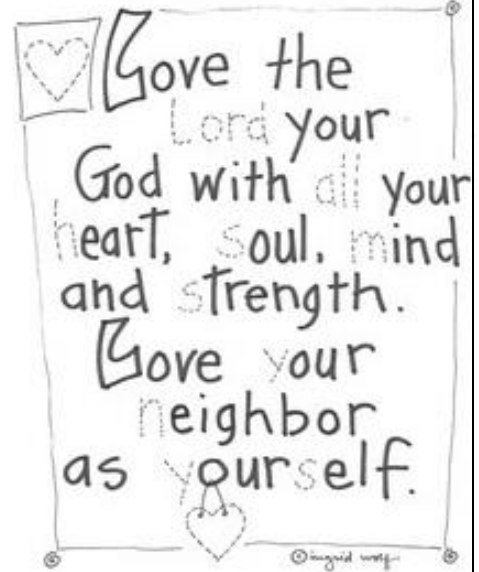 Love the
Lord your
God with all your
heart, soul, mind
and strength.
Love your
neighbor
as yourself.
©ingrid wolf